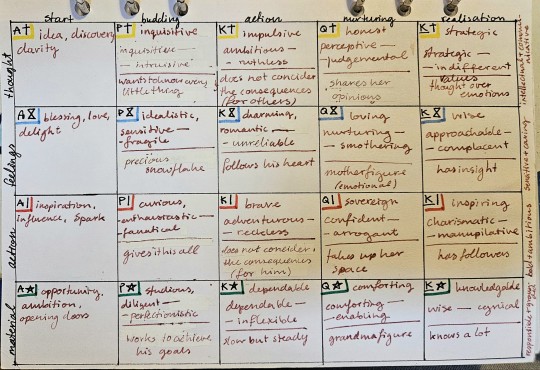 start budding action nurturing realisation
thought
A† idea, discovery
clarity
P† inquisitive
inquisitive—
—intrusive
wants to know every
little thing
K† impulsive
ambitious—
—ruthless
does not consider
the consequences
(for others)
Q† honest
perceptive—
—judgemental
shares her
opinions
K† strategic
strategic—
—indifferent
values
thought over
emotions
intellectual + commu-
nicative
feelings
A blessing, love,
delight
P idealistic,
sensitive—
—fragile
precious
snowflake
K charming,
romantic—
—unreliable
follows his heart
Q loving
nurturing—
—smothering
motherfigure
(emotional)
K wise
approachable—
—complacent
has insight
sensitive + caring
action
A| inspiration,
influence, spark
P| curious,
enthusiastic—
—fanatical
gives it his all
K| brave
adventurous—
—reckless
does not consider
the consequences
(for him)
Q| sovereign
confident—
—arrogant
takes up her
space
K| inspiring
charismatic—
—manupilative
has followers
bold + ambitious
material
A☆ opportunity,
ambition,
opening doors
P☆ studious,
diligent—
—perfectionistic
works to achieve
his goals
K☆ dependable
dependable—
—inflexible
slow but steady
Q☆ comforting
comforting—
—enabling
grandmafigure
K☆ knowledgable
wise — cynical
knows a lot
responsible +